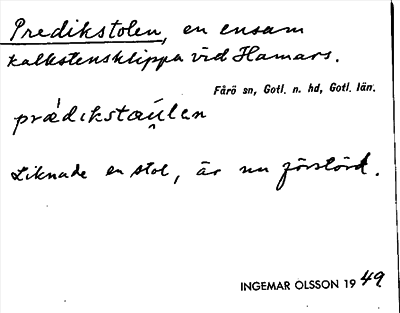 Predikstolen, en ensam
kalkstensklippa vid Hamars.
Fårö sn, Gotl. n. hd, Gotl. län.
prǽdikstau̯len
Liknade en stol, är nu förstörd.
INGEMAR OLSSON 1949